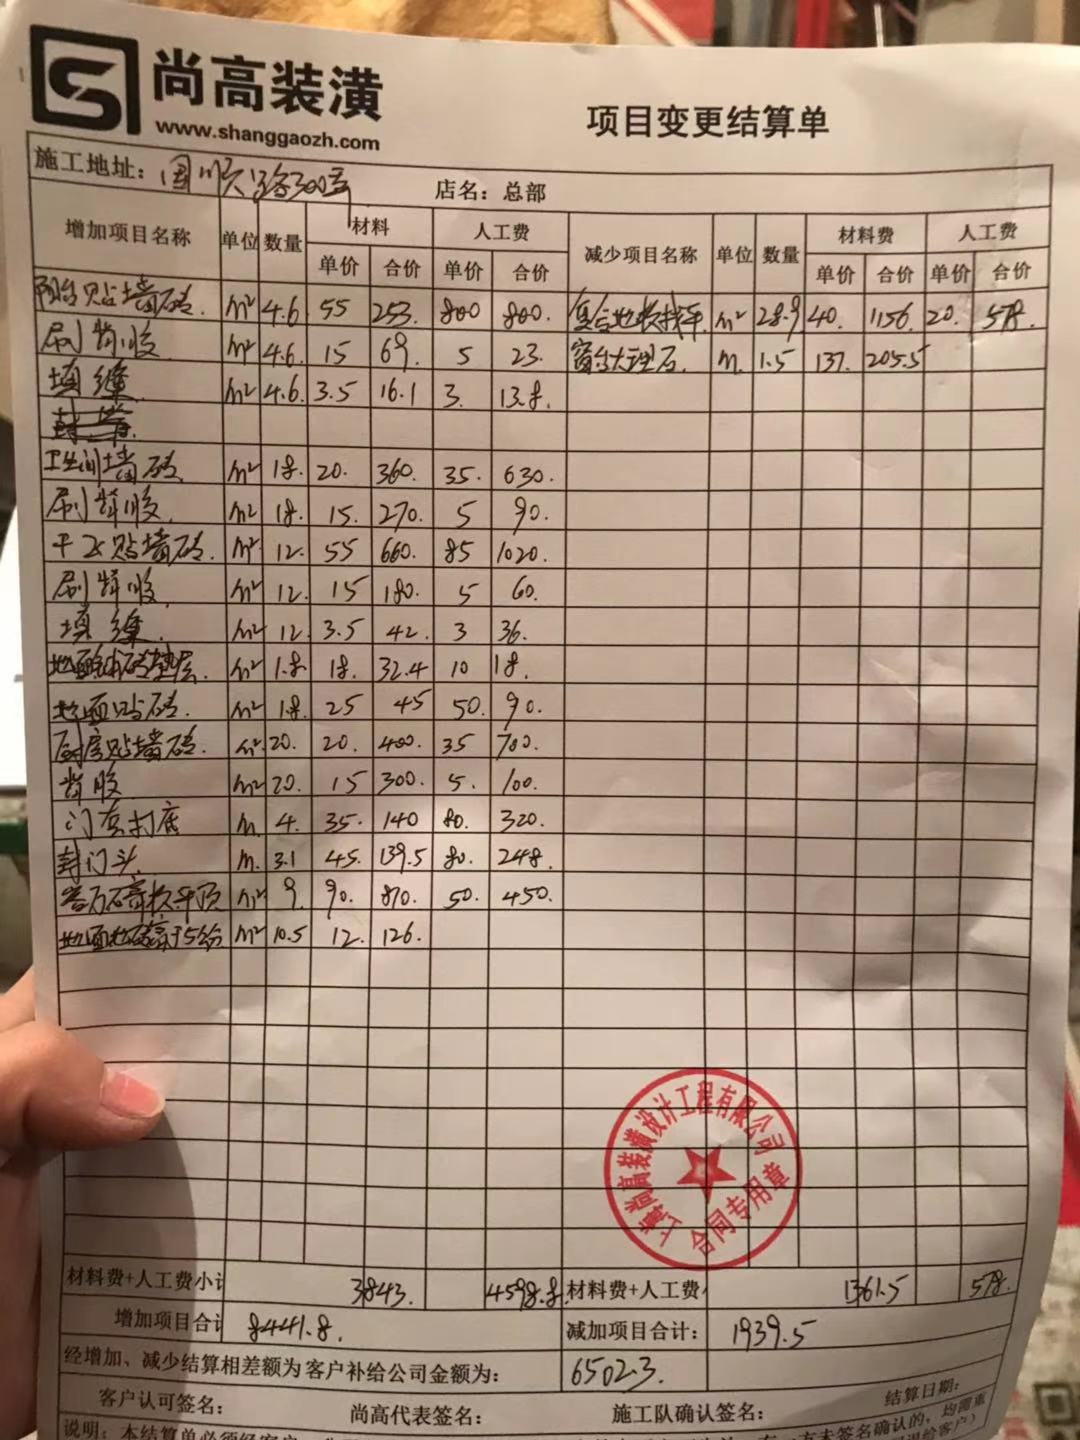 尚高装潢
www.shanggaozh.com
项目变更结算单
施工地址：国顺路300弄
店名：总部
增加项目名称 单位 数量 材料 人工费 减少项目名称 单位 数量 材料费 人工费
单价 合价 单价 合价 单价 合价 单价 合价
阳台贴墙砖. m² 4.6 55 253. 800 800. 复合地板找平 m² 28.9 40. 1156. 20. 578.
刷背胶 m² 4.6. 15 69. 5 23. 窗台大理石. m. 1.5 137. 205.5
填缝. m² 4.6. 3.5 16.1 3. 13.8.
卫生间墙砖. m² 18. 20. 360. 35. 630.
刷背胶. m² 18. 15. 270. 5 90.
干区贴墙砖. m² 12. 55 660. 85 1020.
刷背胶 m² 12. 15 180. 5 60.
填缝. m² 12. 3.5 42. 3 36.
地面 砖垫层. m² 1.8. 18. 32.4 10 18.
地面贴砖. m² 1.8. 25 45 50. 90.
厨房贴墙砖. m² 20. 20. 400. 35 700.
背胶 m² 20. 15 300. 5. 100.
门套打底 m. 4. 35. 140 80. 320.
封门头. m. 3.1 45. 139.5 80. 248.
m² 9. 90. 810. 50. 450.
地面地砖高于5公分 m² 10.5 12. 126.
上海尚高装潢设计工程有限公司
合同专用章
材料费+人工费小计 3843. 4598.8. 材料费+人工费 1361.5 578.
增加项目合计 8441.8. 减加项目合计： 1939.5
经增加、减少结算相差额为客户补给公司金额为： 6502.3.
客户认可签名： 尚高代表签名： 施工队确认签名： 结算日期：
说明：本结算单必须经客户 方未签名确认的，均需重
退给客户）